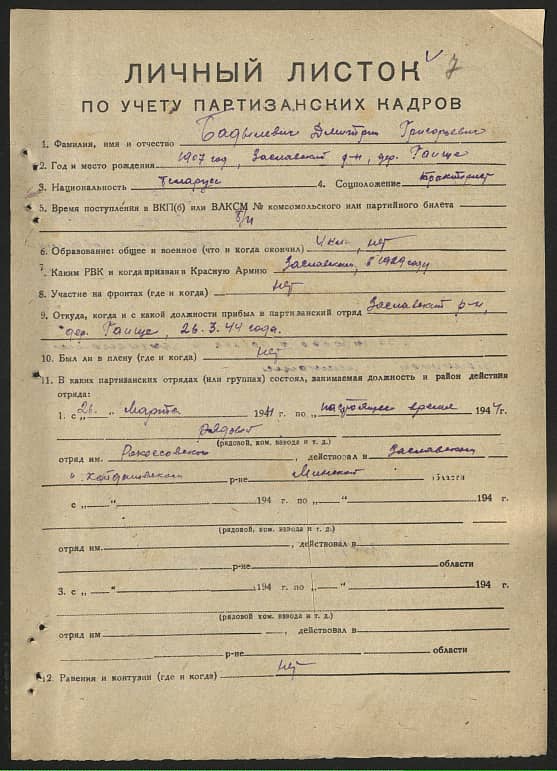 7
ЛИЧНЫЙ ЛИСТОК
ПО УЧЕТУ ПАРТИЗАНСКИХ КАДРОВ
1. Фамилия, имя и отчество Бадылевич Дмитрий Григорьевич
2. Год и место рождения 1907 год, Заславский р-н, дер. Гаище
3. Национальность Беларус 4. Соцположение тракторист
5. Время поступления в ВКП(б) или ВЛКСМ № комсомольского или партийного билета
б/п
6. Образование: общее и военное (что и когда окончил) 4 кл., нет
7. Каким РВК и когда призван в Красную Армию Заславским, в 1929 году
8. Участие на фронтах (где и когда) нет
9. Откуда, когда и с какой должности прибыл в партизанский отряд Заславский р-н,
дер. Гаище. 26.3.44 года.
10. Был ли в плену (где и когда) нет
11. В каких партизанских отрядах (или группах) состоял, занимаемая должность и район действия
отряда:
1. с „26“ марта 1944 г. по „настоящее время 1944 г.
рядовой
(рядовой, ком. взвода и т. д.)
отряд им. Рокоссовского, действовал в Заславском
и Койдановском р-не Минской области
с „ “ 194 г. по „ “ 194 г.
(рядовой, ком. взвода и т. д.)
отряд им. , действовал в
р-не области
3. с „ “ 194 г. по „ “ 194 г.
(рядовой ком. взвода и т. д.)
отряд им , действовал в
р-не области
12. Ранения и контузии (где и когда) нет